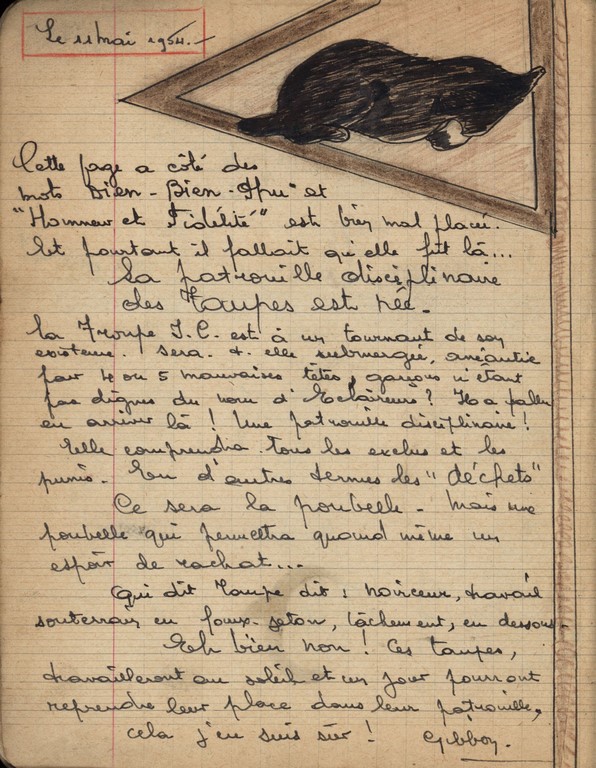 Le 11 mai 1954.-
Cette page a côté des
mots Dien - Bien - Phu" et
"Honneur et Fidélité" est bien mal placée.
Et pourtant il fallait qu'elle fût là...
La patrouille disciplinaire
des Taupes est née.
La Troupe J.C. est à un tournant de son
existence. Sera-t-elle submergée, anéantie
par 4 ou 5 mauvaises têtes, garçons n'étant
pas dignes du nom d'Eclaireurs? Il a fallu
en arriver là! Une patrouille disciplinaire!
Elle comprendra tous les exclus et les
punis. En d'autres termes les "déchets"
Ce sera la poubelle - Mais une
poubelle qui permettra quand même un
espoir de rachat...
Qui dit Taupe dit : noirceur, travail
souterrain en faux-jeton, lâchement, en dessous.
Eh bien non! Ces taupes,
travailleront au soleil et un jour pourront
reprendre leur place dans leur patrouille,
cela j'en suis sûr! Gibbon.